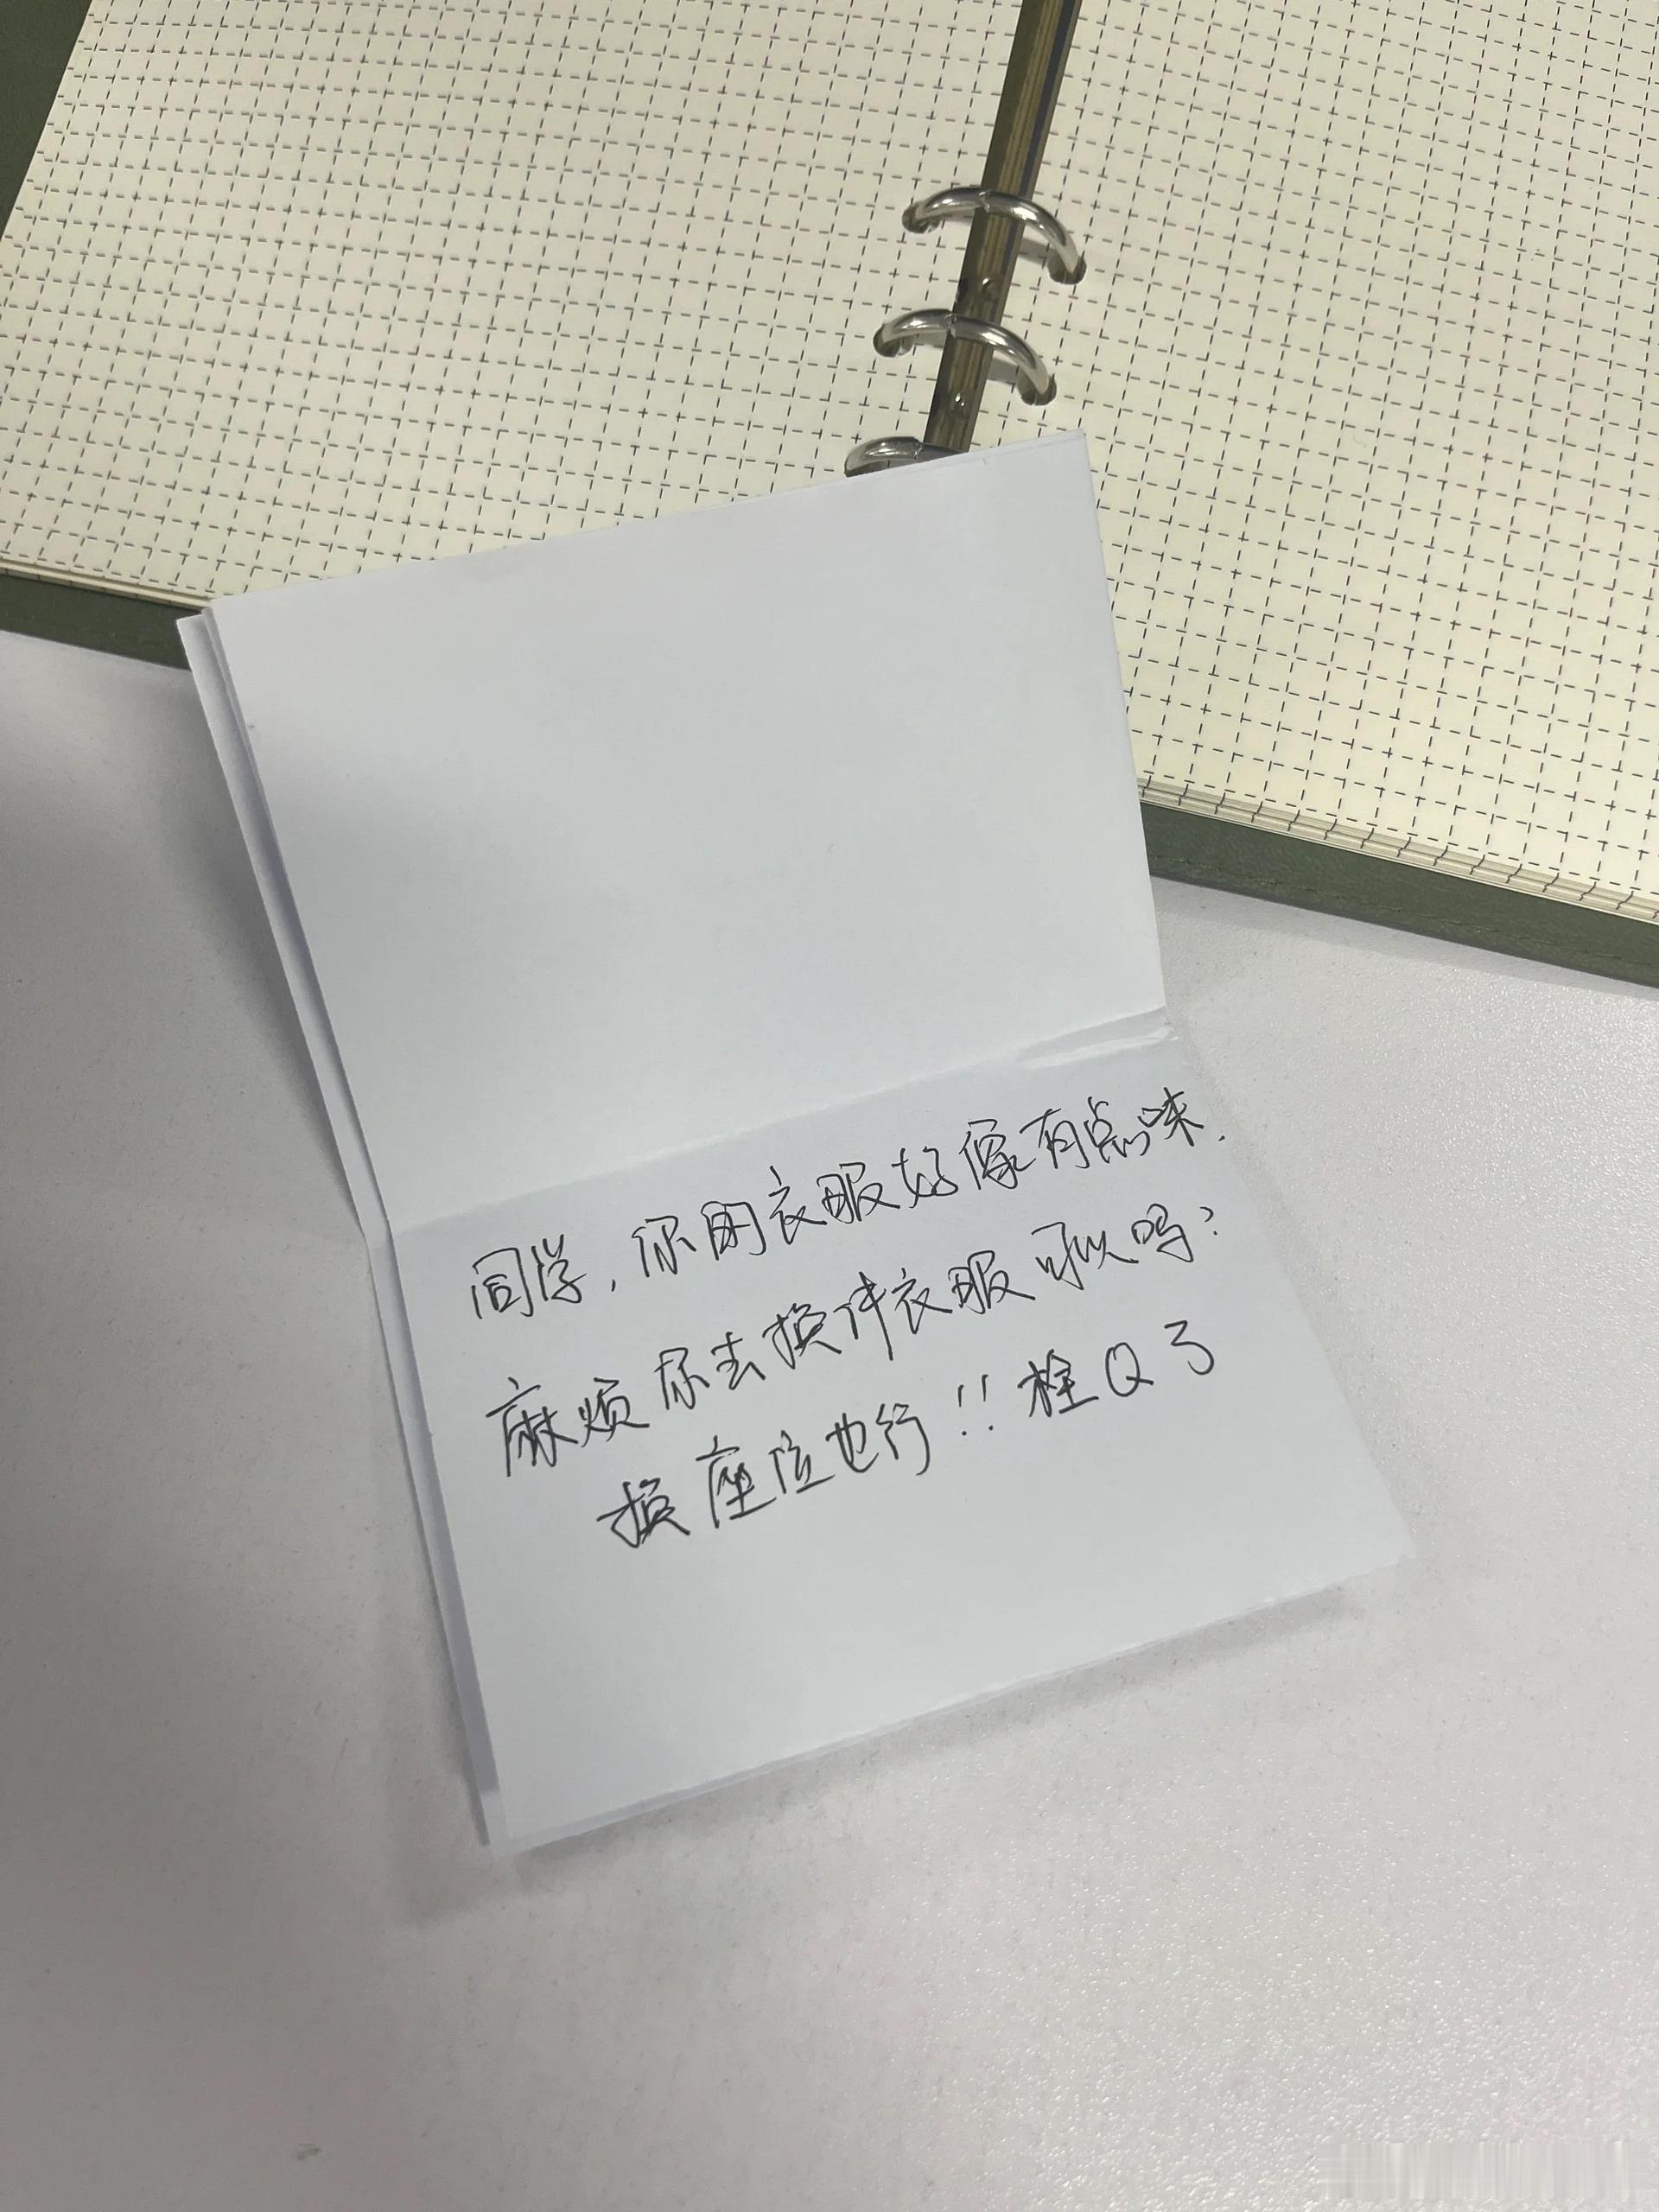 同学，你的衣服好像有点味.
麻烦你去换件衣服可以吗？
换座位也行!! 栓Q了